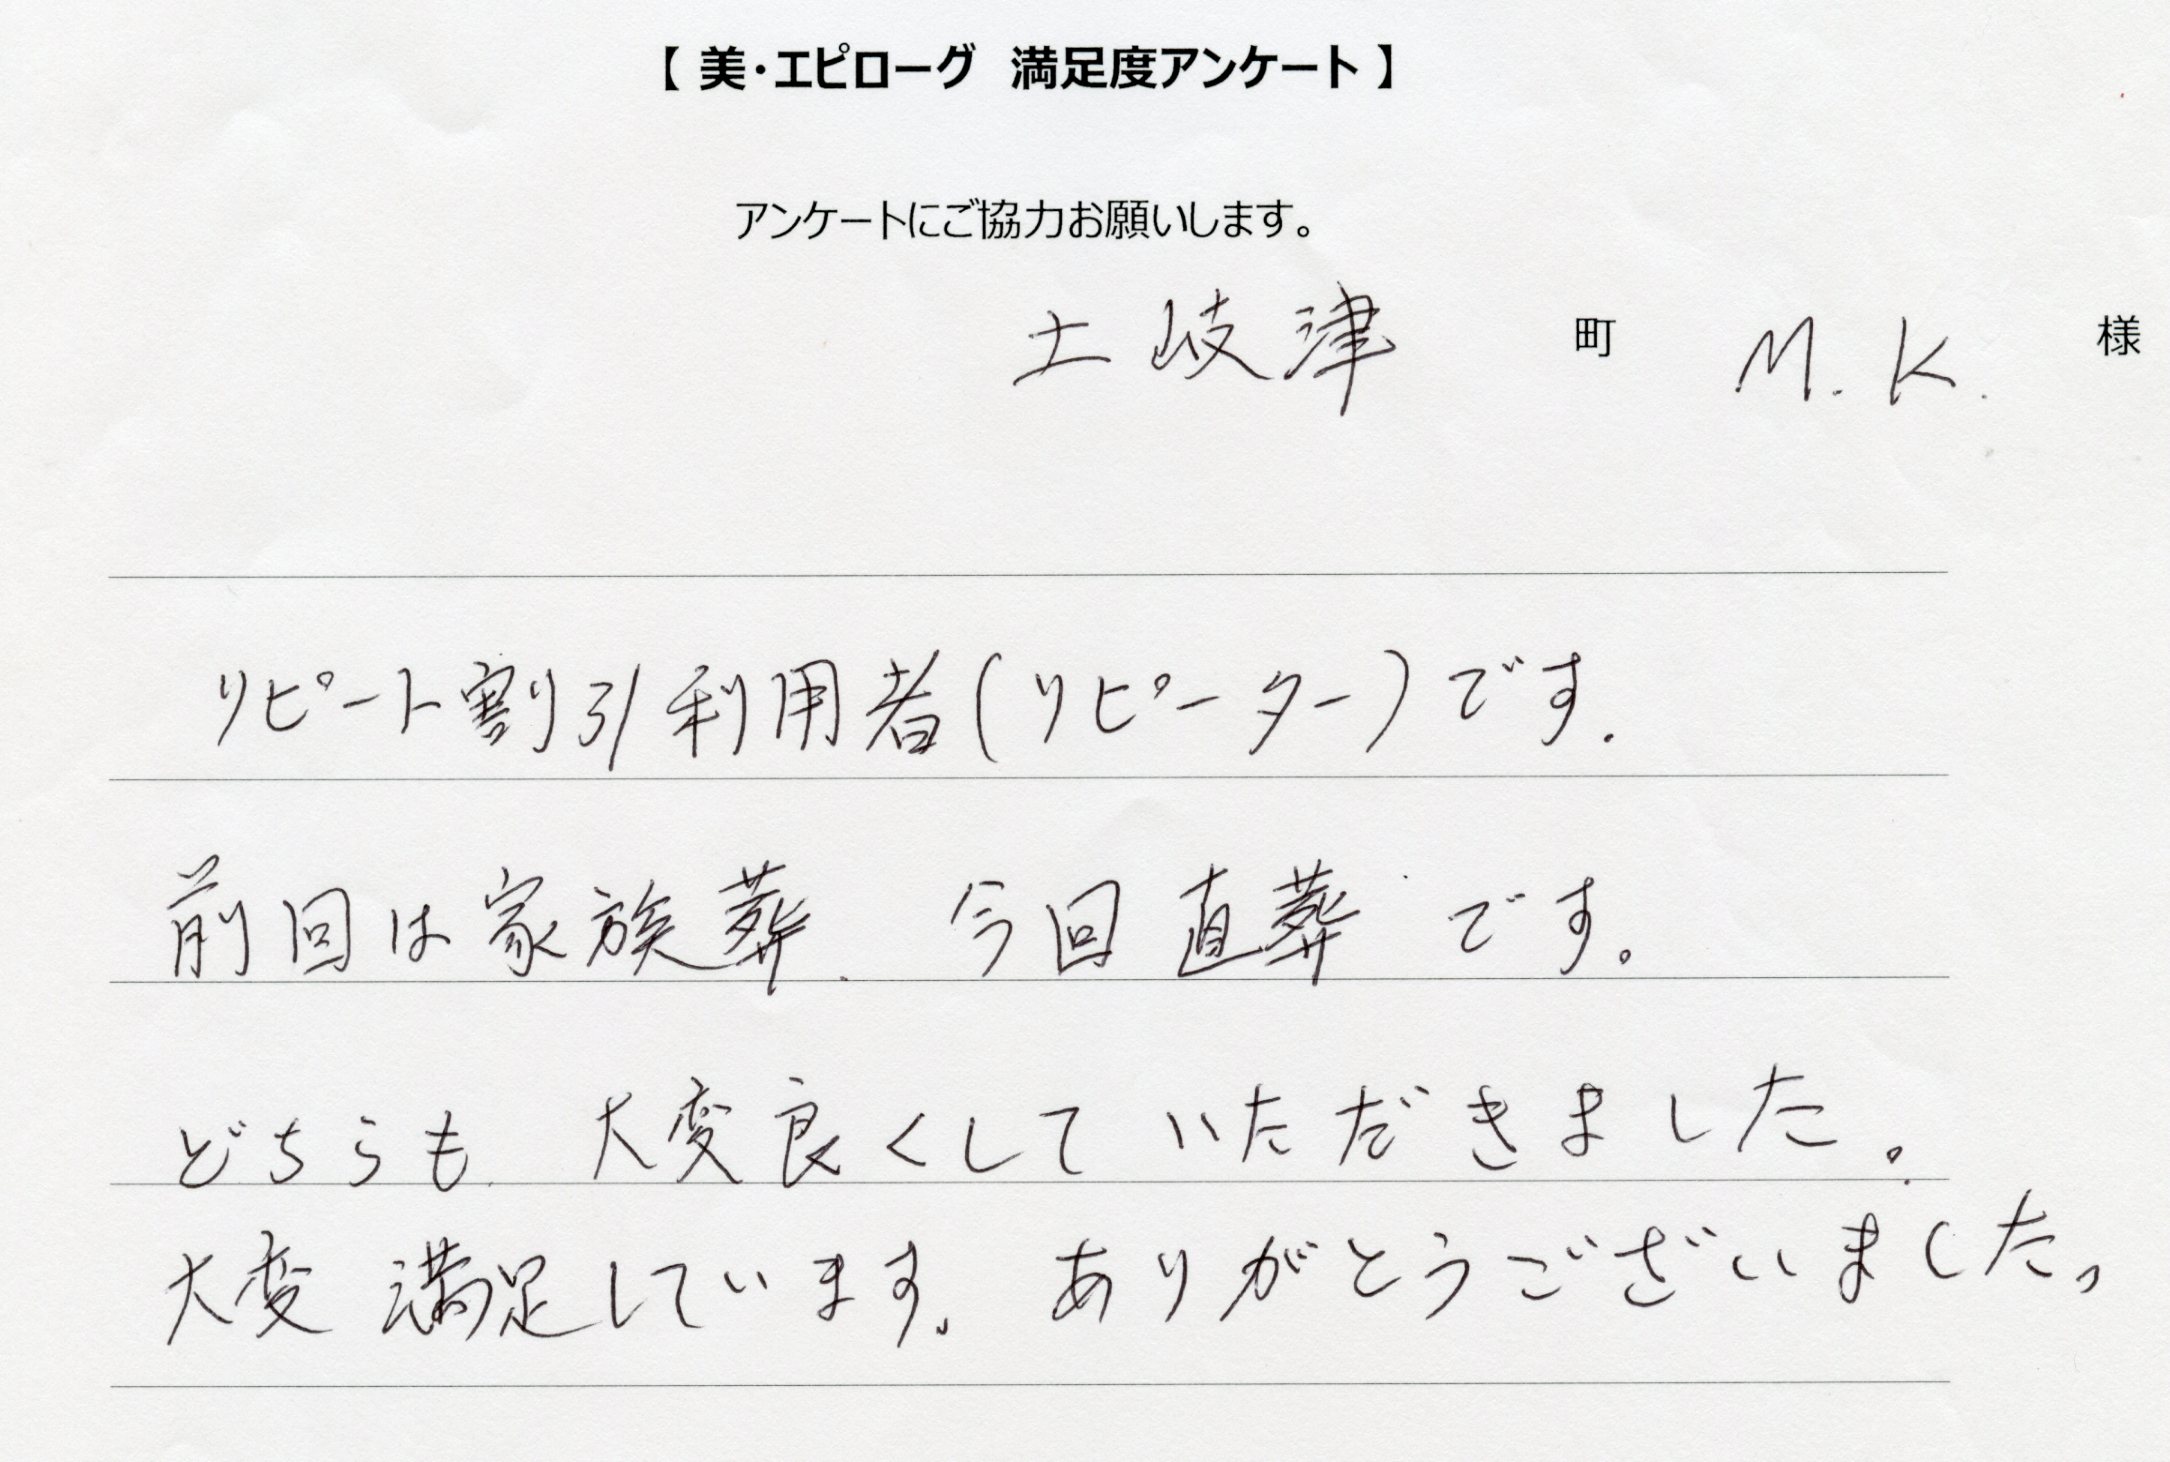 【 美・エピローグ 満足度アンケート 】
アンケートにご協力お願いします。
土岐津 町 M. K. 様
リピート割引利用者(リピーター)です.
前回は家族葬. 今回直葬です。
どちらも. 大変良くしていただきました。
大変満足しています。ありがとうございました。